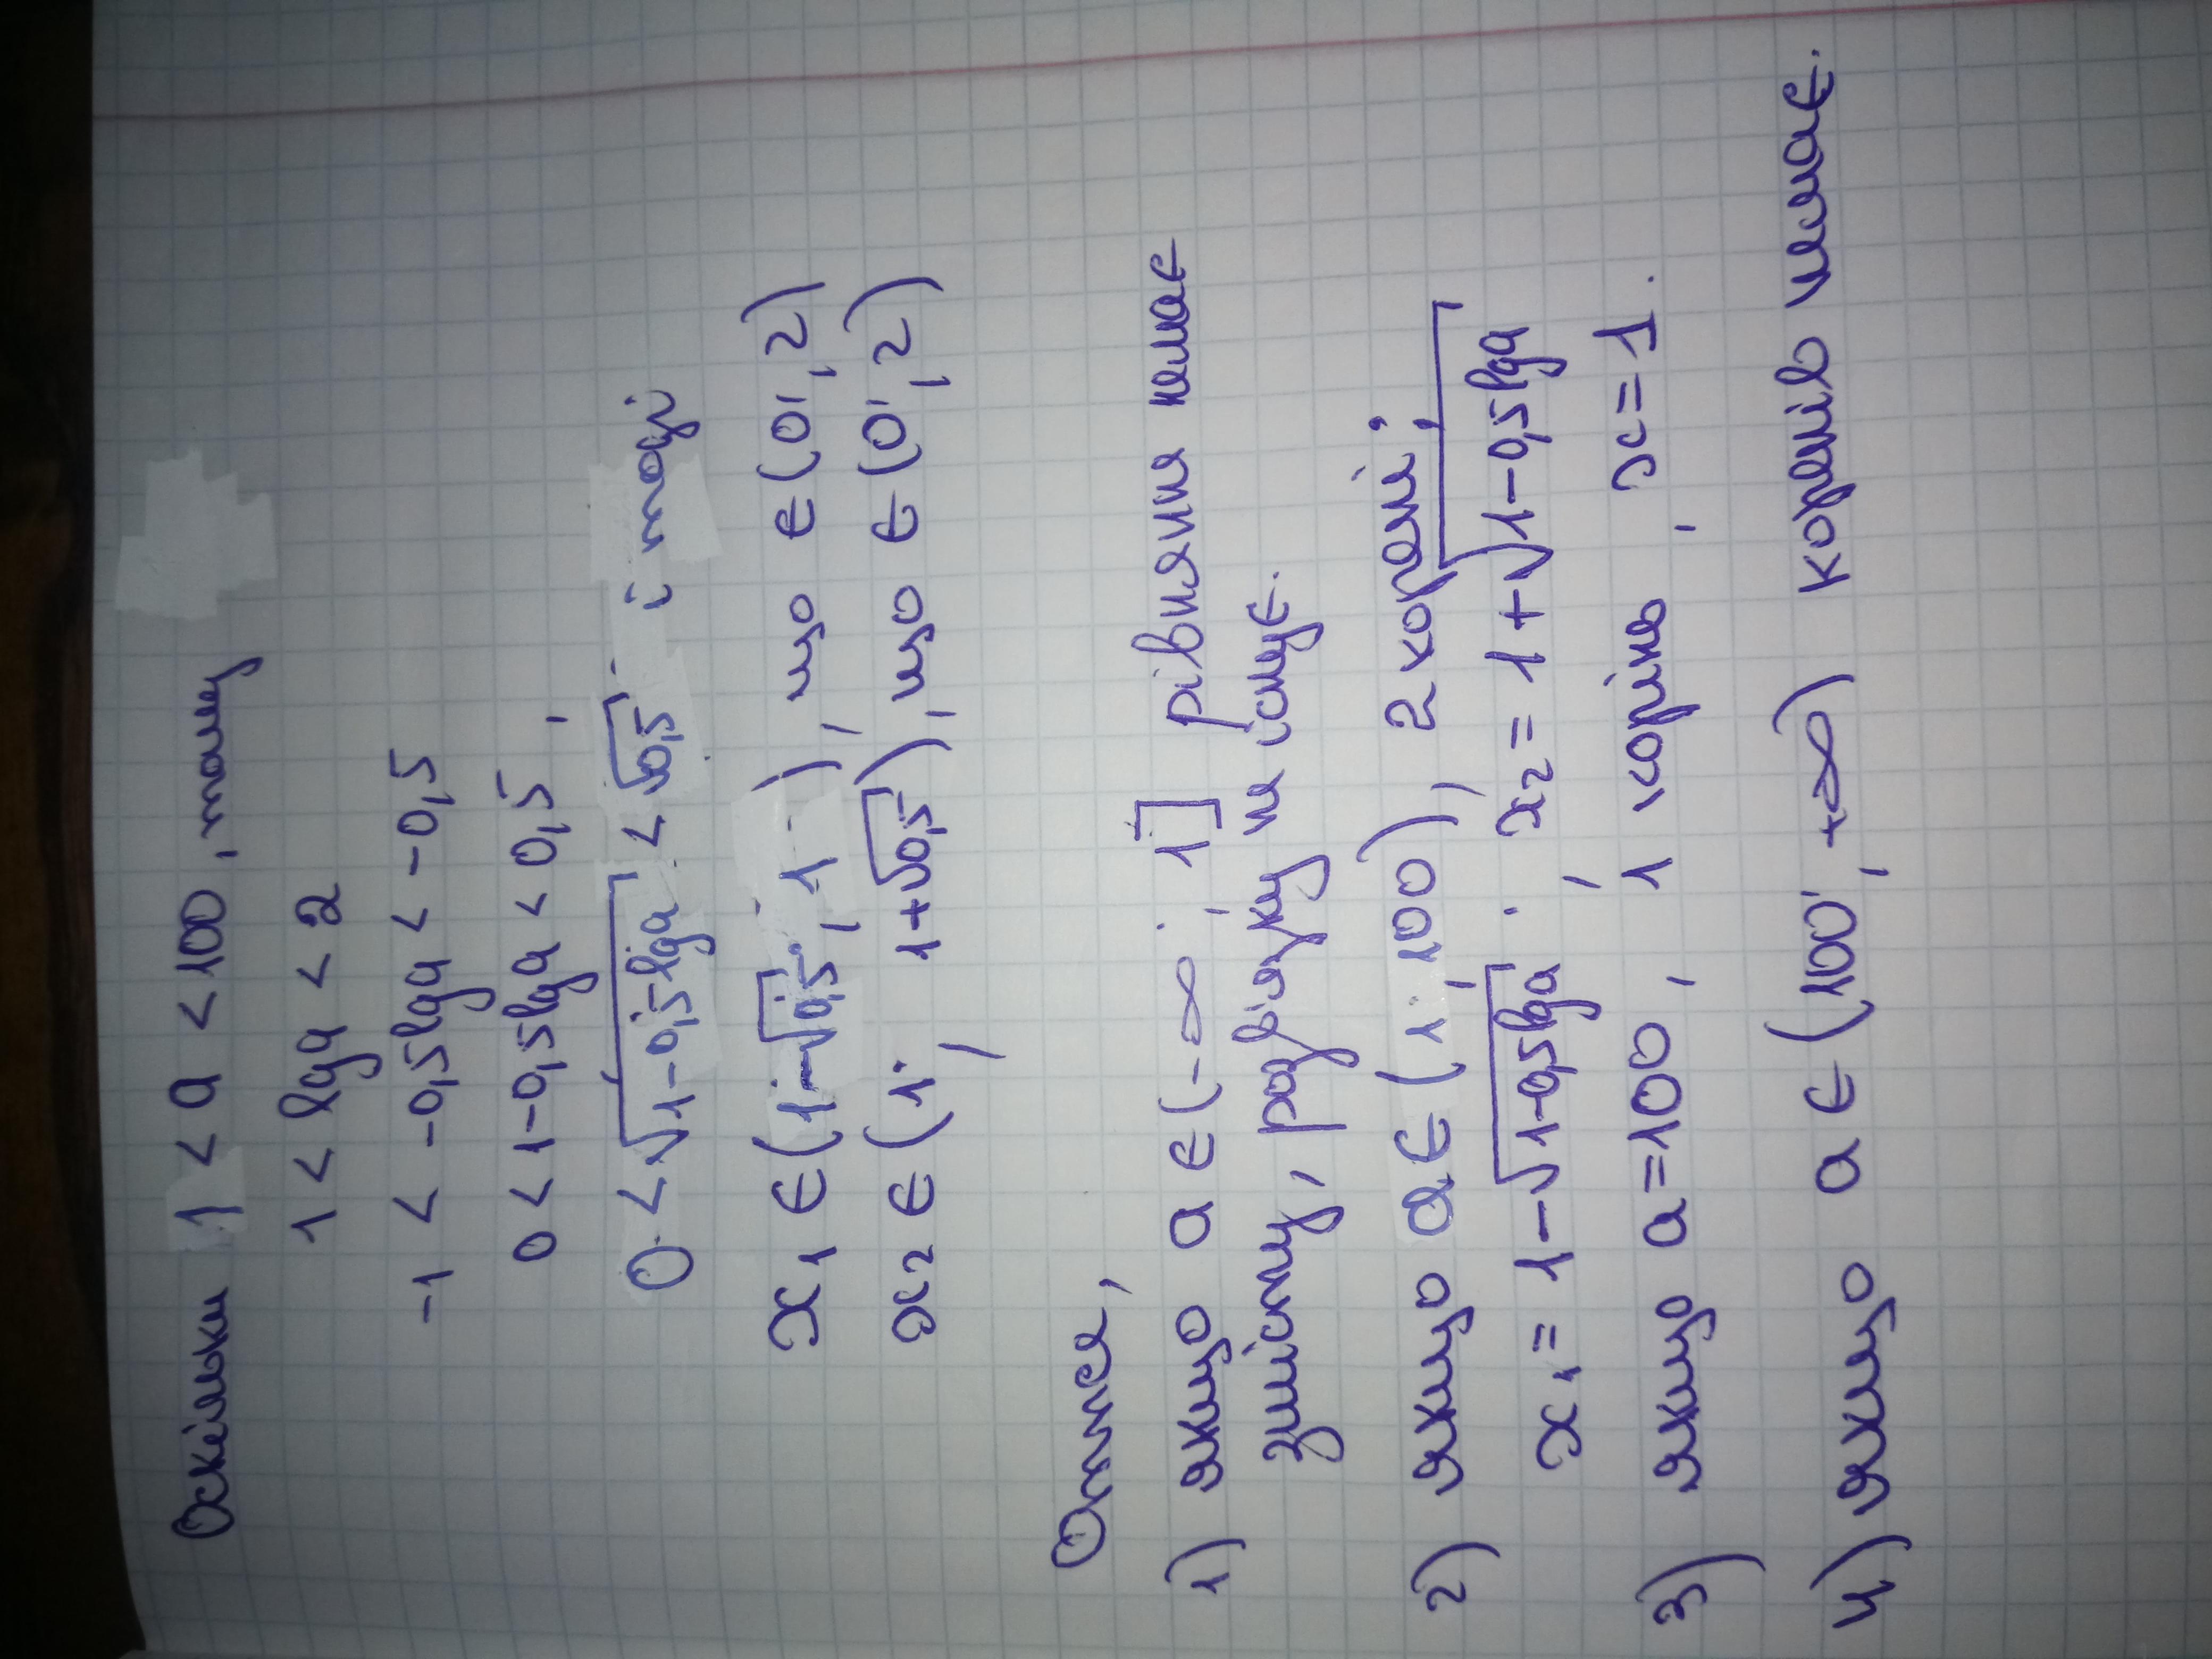 Оскільки 1 < a < 100, тому
1 < lga < 2
-1 < -0,5lga < -0,5
0 < 1-0,5lga < 0,5,
0 < √1-0,5lga < √0,5 і тоді
x₁ ∈ (1-√0,5; 1), що ∈ (0; 2)
x₂ ∈ (1; 1+√0,5), що ∈ (0; 2)
Отже,
1) якщо a ∈ (-∞; 1] рівняння немає
змісту, розв'язку не існує.
2) якщо a ∈ (1; 100), 2 корені:
x₁ = 1-√1-0,5lga; x₂ = 1+√1-0,5lga
3) якщо a=100, 1 корінь, x=1.
4) якщо a ∈ (100; +∞) коренів немає.